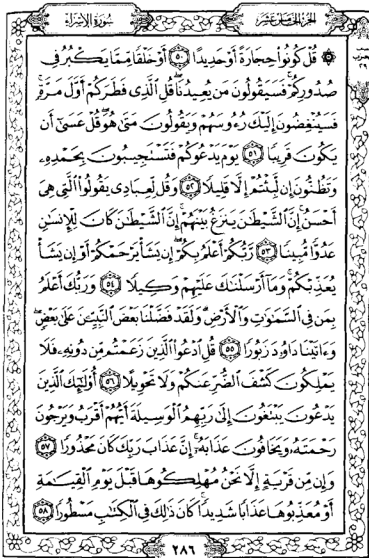 الجزء الخامس عشر
سورة الإسراء
۞ قُلْ كُونُوا۟ حِجَارَةً أَوْ حَدِيدًا ٥٠ أَوْ خَلْقًا مِّمَّا يَكْبُرُ فِى
صُدُورِكُمْ ۚ فَسَيَقُولُونَ مَن يُعِيدُنَا ۖ قُلِ ٱلَّذِى فَطَرَكُمْ أَوَّلَ مَرَّةٍ ۚ
فَسَيُنْغِضُونَ إِلَيْكَ رُءُوسَهُمْ وَيَقُولُونَ مَتَىٰ هُوَ ۖ قُلْ عَسَىٰٓ أَن
يَكُونَ قَرِيبًا ٥١ يَوْمَ يَدْعُوكُمْ فَتَسْتَجِيبُونَ بِحَمْدِهِۦ
وَتَظُنُّونَ إِن لَّبِثْتُمْ إِلَّا قَلِيلًا ٥٢ وَقُل لِّعِبَادِى يَقُولُوا۟ ٱلَّتِى هِىَ
أَحْسَنُ ۚ إِنَّ ٱلشَّيْطَٰنَ يَنزَغُ بَيْنَهُمْ ۚ إِنَّ ٱلشَّيْطَٰنَ كَانَ لِلْإِنسَٰنِ
عَدُوًّا مُّبِينًا ٥٣ رَّبُّكُمْ أَعْلَمُ بِكُمْ ۖ إِن يَشَأْ يَرْحَمْكُمْ أَوْ إِن يَشَأْ
يُعَذِّبْكُمْ ۚ وَمَآ أَرْسَلْنَٰكَ عَلَيْهِمْ وَكِيلًا ٥٤ وَرَبُّكَ أَعْلَمُ
بِمَن فِى ٱلسَّمَٰوَٰتِ وَٱلْأَرْضِ ۗ وَلَقَدْ فَضَّلْنَا بَعْضَ ٱلنَّبِيِّـۧنَ عَلَىٰ بَعْضٍ ۖ
وَءَاتَيْنَا دَاوُۥدَ زَبُورًا ٥٥ قُلِ ٱدْعُوا۟ ٱلَّذِينَ زَعَمْتُم مِّن دُونِهِۦ فَلَا
يَمْلِكُونَ كَشْفَ ٱلضُّرِّ عَنكُمْ وَلَا تَحْوِيلًا ٥٦ أُو۟لَٰٓئِكَ ٱلَّذِينَ
يَدْعُونَ يَبْتَغُونَ إِلَىٰ رَبِّهِمُ ٱلْوَسِيلَةَ أَيُّهُمْ أَقْرَبُ وَيَرْجُونَ
رَحْمَتَهُۥ وَيَخَافُونَ عَذَابَهُۥٓ ۚ إِنَّ عَذَابَ رَبِّكَ كَانَ مَحْذُورًا ٥٧
وَإِن مِّن قَرْيَةٍ إِلَّا نَحْنُ مُهْلِكُوهَا قَبْلَ يَوْمِ ٱلْقِيَٰمَةِ
أَوْ مُعَذِّبُوهَا عَذَابًا شَدِيدًا ۚ كَانَ ذَٰلِكَ فِى ٱلْكِتَٰبِ مَسْطُورًا ٥٨
٢٨٦